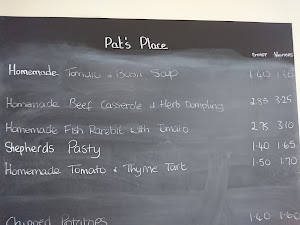 Pat's Place
Student Visitors
Homemade Tomato & Bean Soup 1.40 1.60
Homemade Beef Casserole & Herb Dumpling 2.85 3.25
Homemade Fish Rarebit with Tomato 2.75 3.10
Shepherds Pasty 1.40 1.65
Homemade Tomato & Thyme Tart 1.50 1.70
Chipped Potatoes 1.40 1.60